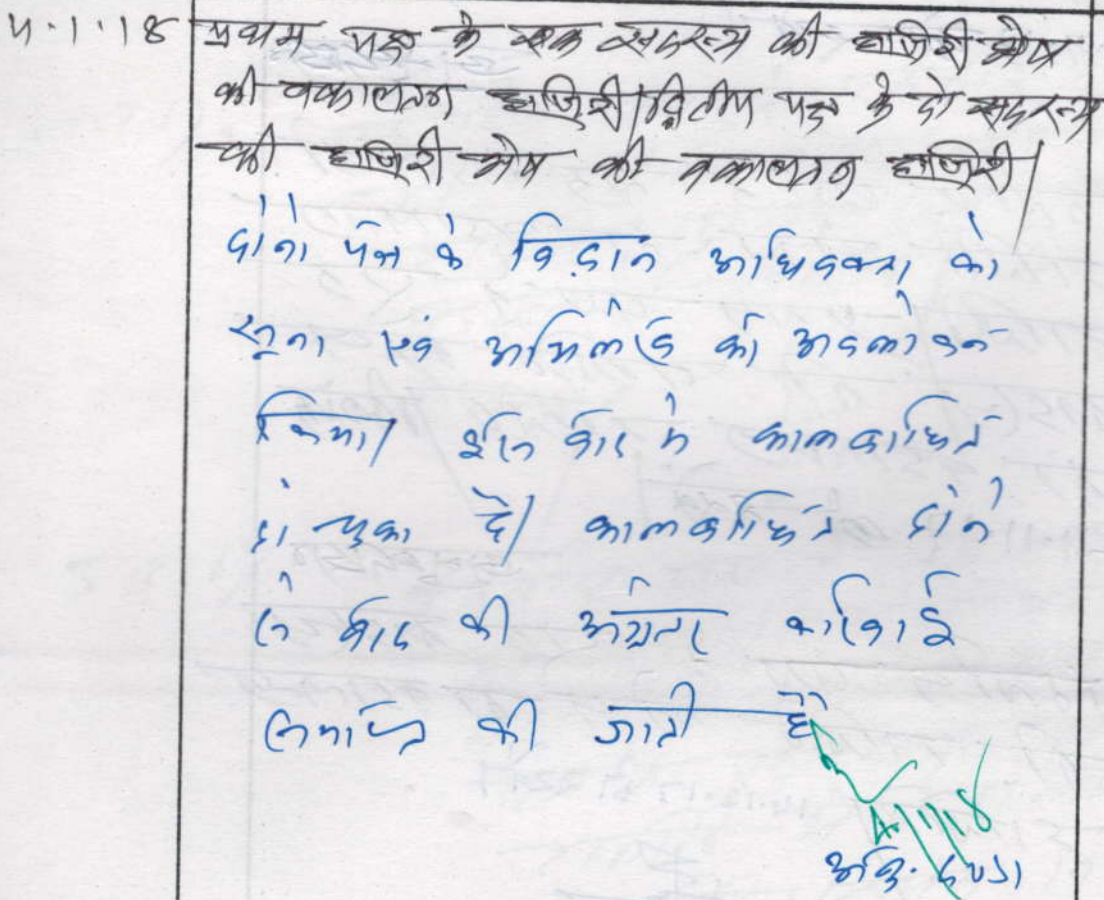 4.1.18 प्रथम पक्ष के एक सदस्य की हाजिरी शेष
की वकालतन हाजिरी। द्वितीय पक्ष के दो सदस्य
की हाजिरी शेष की वकालतन हाजिरी।
दोनो पक्ष के विद्वान अधिवक्ता को
सुना एवं अभिलेख की अवलोकन
किया। इस वाद मे कालबाधित
हो चुका है। कालबाधित होने
से वाद की अग्रेतर कार्रवाई
समाप्त की जाती है
4/1/18